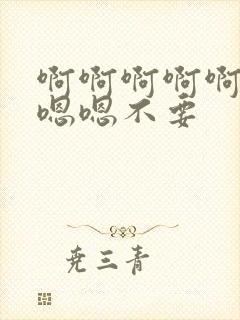 啊啊啊啊啊
嗯嗯不要
尧三青